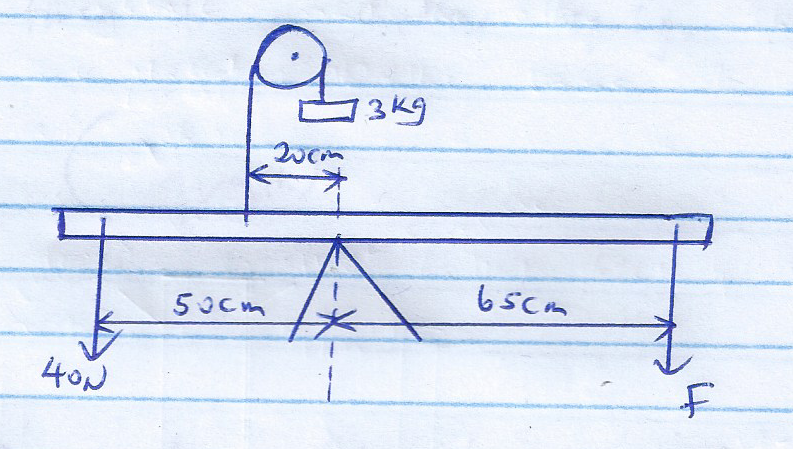 3kg
20cm
50cm
65cm
40N
F